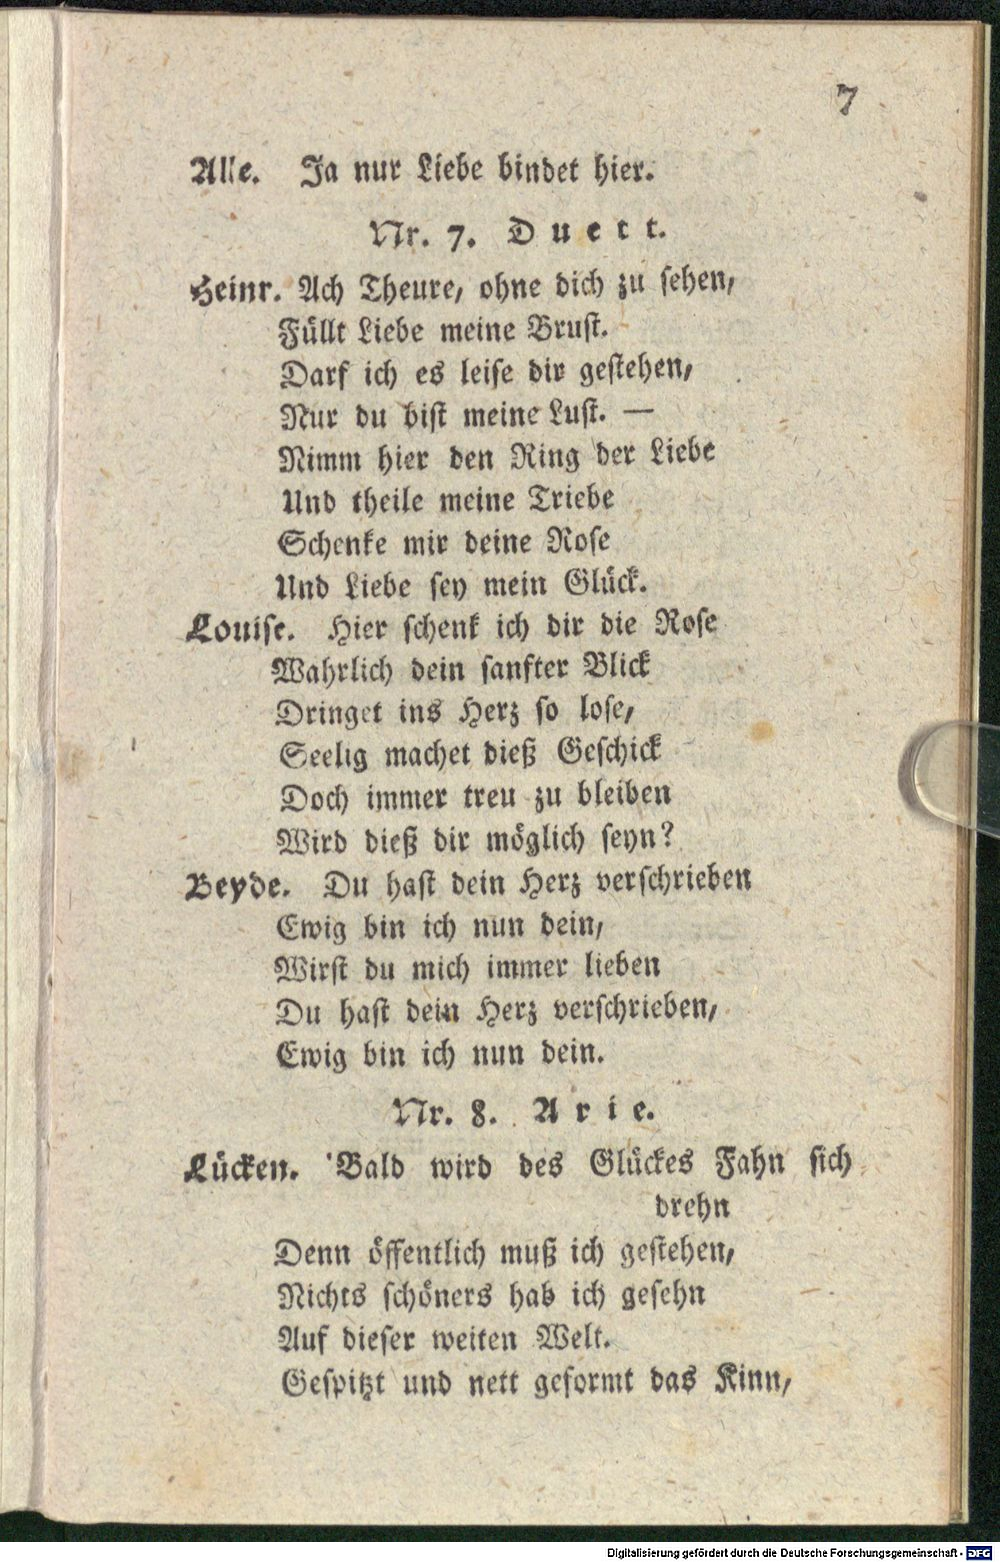 7
Alle. Ja nur Liebe bindet hier.
Nr. 7. Duett.
Heinr. Ach Theure, ohne dich zu sehen,
Füllt Liebe meine Brust.
Darf ich es leise dir gestehen,
Nur du bist meine Lust. —
Nimm hier den Ring der Liebe
Und theile meine Triebe
Schenke mir deine Rose
Und Liebe sey mein Glück.
Louise. Hier schenk ich dir die Rose
Wahrlich dein sanfter Blick
Dringet ins Herz so lose,
Seelig machet dieß Geschick
Doch immer treu zu bleiben
Wird dieß dir möglich seyn?
Beyde. Du hast dein Herz verschrieben
Ewig bin ich nun dein,
Wirst du mich immer lieben
Du hast dein Herz verschrieben,
Ewig bin ich nun dein.
Nr. 8. Arie.
Lücken. Bald wird des Glückes Fahn sich
drehn
Denn öffentlich muß ich gestehen,
Nichts schöners hab ich gesehn
Auf dieser weiten Welt.
Gespitzt und nett geformt das Kinn,
Digitalisierung gefördert durch die Deutsche Forschungsgemeinschaft - DFG